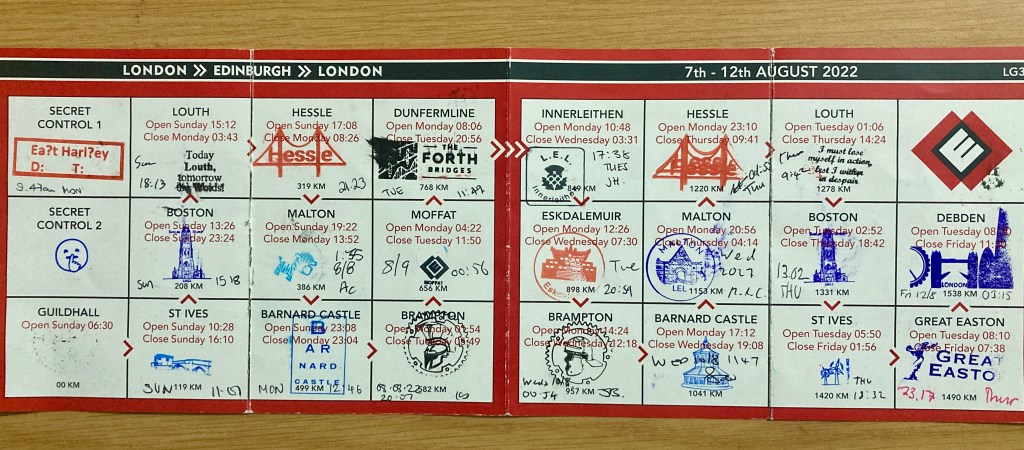 LONDON >> EDINBURGH >> LONDON
7th - 12th AUGUST 2022
LG3
SECRET
CONTROL 1
Ea?t Harl?ey
D: T:
9.47am MON
LOUTH
Open Sunday 15:12
Close Monday 03:43
Sun
18:13
Today
Louth,
tomorrow
the Wolds!
HESSLE
Open Sunday 17:08
Close Monday 08:26
Hessle
319 KM
21.23
DUNFERMLINE
Open Monday 08:06
Close Tuesday 20:56
THE
FORTH
BRIDGES
TUE
768 KM
11:49
INNERLEITHEN
Open Monday 10:48
Close Wednesday 03:31
L.E.L.
Innerleithen
849 KM
17:35
TUES
JH.
HESSLE
Open Monday 23:10
Close Thursday 09:41
Hessle
1220 KM
Thu
LOUTH
Open Tuesday 01:06
Close Thursday 14:24
Thur
9:42
I must lose
myself in action,
lest I wither
in despair
1278 KM
E
SECRET
CONTROL 2
BOSTON
Open Sunday 13:26
Close Sunday 23:24
Sun
208 KM
1518
MALTON
Open Sunday 19:22
Close Monday 13:52
1:35
8/8
Ac.
386 KM
MOFFAT
Open Monday 04:22
Close Tuesday 11:50
8/9
MOFFAT
00:56
656 KM
ESKDALEMUIR
Open Monday 12:26
Close Wednesday 07:30
Tue
898 KM
20:59
MALTON
Open Monday 04:56
Close Thursday 04:14
MALTON
LEL
Wed
1153 KM
BOSTON
Open Tuesday 02:52
Close Thursday 18:42
13.02
THU
1331 KM
DEBDEN
Open Tuesday
Close Friday
LONDON
Fri 12/8
1538 KM
03:15
GUILDHALL
Open Sunday 06:30
00 KM
ST IVES
Open Sunday 10:28
Close Sunday 16:10
SUN
119 KM
11:07
BARNARD CASTLE
Open Sunday 23:08
Close Monday 23:04
B
AR
NARD
CASTLE
MON
499 KM
12:46
BRAMPTON
Open Monday 01:54
Close Tuesday 05:49
582 KM
20:07
BRAMPTON
Open Monday 14:24
Close Wednesday 12:18
Weds 10/8
957 KM
JB.
BARNARD CASTLE
Open Monday 17:12
Close Wednesday 19:08
Wed 10/8 1147
1041 KM
ST IVES
Open Tuesday 05:50
Close Friday 01:56
THU
1420 KM
18:32
GREAT EASTON
Open Tuesday 08:10
Close Friday 07:38
GREAT
EASTO
23.17
1490 KM
Thur